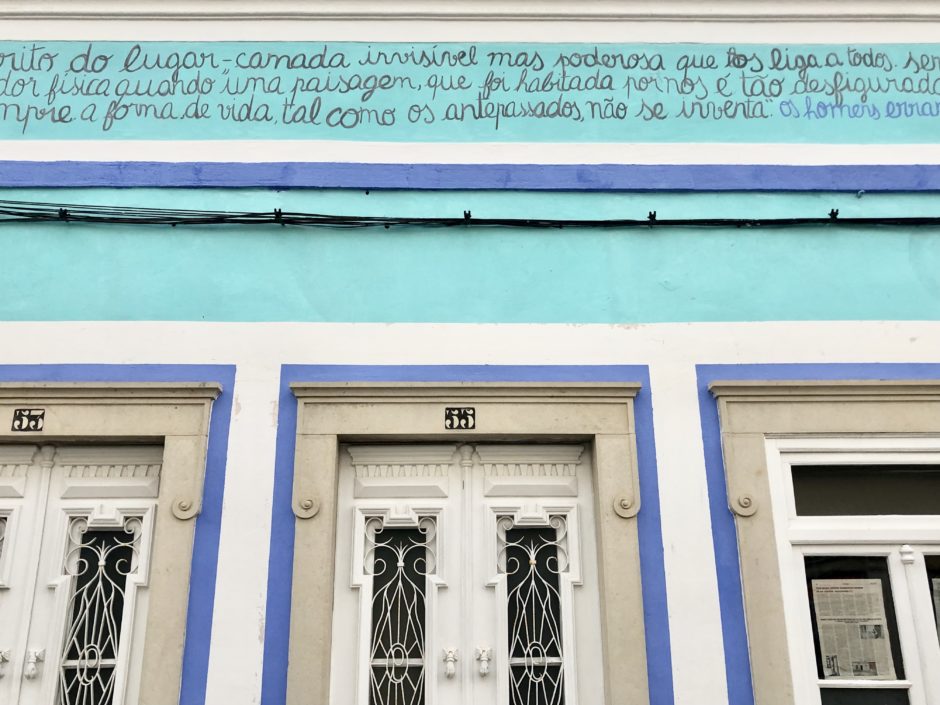 rito do lugar-camada invisível mas poderosa que nos liga a todos. sen
dor física quando "uma paisagem, que foi habitada por nós é tão desfigurada
mpre a forma de vida, tal como os antepassados, não se inventa." os homens erra
53
55